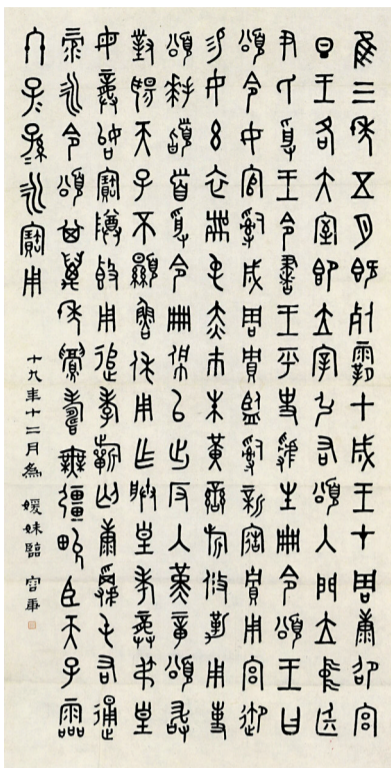 隹三年五月既死霸甲戌王才周康卲宮
旦王各大室即立宰引右頌入門立中廷
尹氏受王令書王乎史虢生冊令頌王曰
頌令女官𤔲成周貯監𤔲新造貯用宮御
易女玄衣黹屯赤巿朱黃䜌旂攸勒用事
頌拜𩒨首受令冊佩以出反入堇章頌敢
對揚天子不顯魯休用乍朕皇考龔弔皇
母龔始寶尊簋用追孝祈匄康𩛥屯右通
彔永令頌其萬年眉壽無疆畯臣天子霝
冬子子孫孫永寶用
十九年十二月為 媛妹臨 容庚